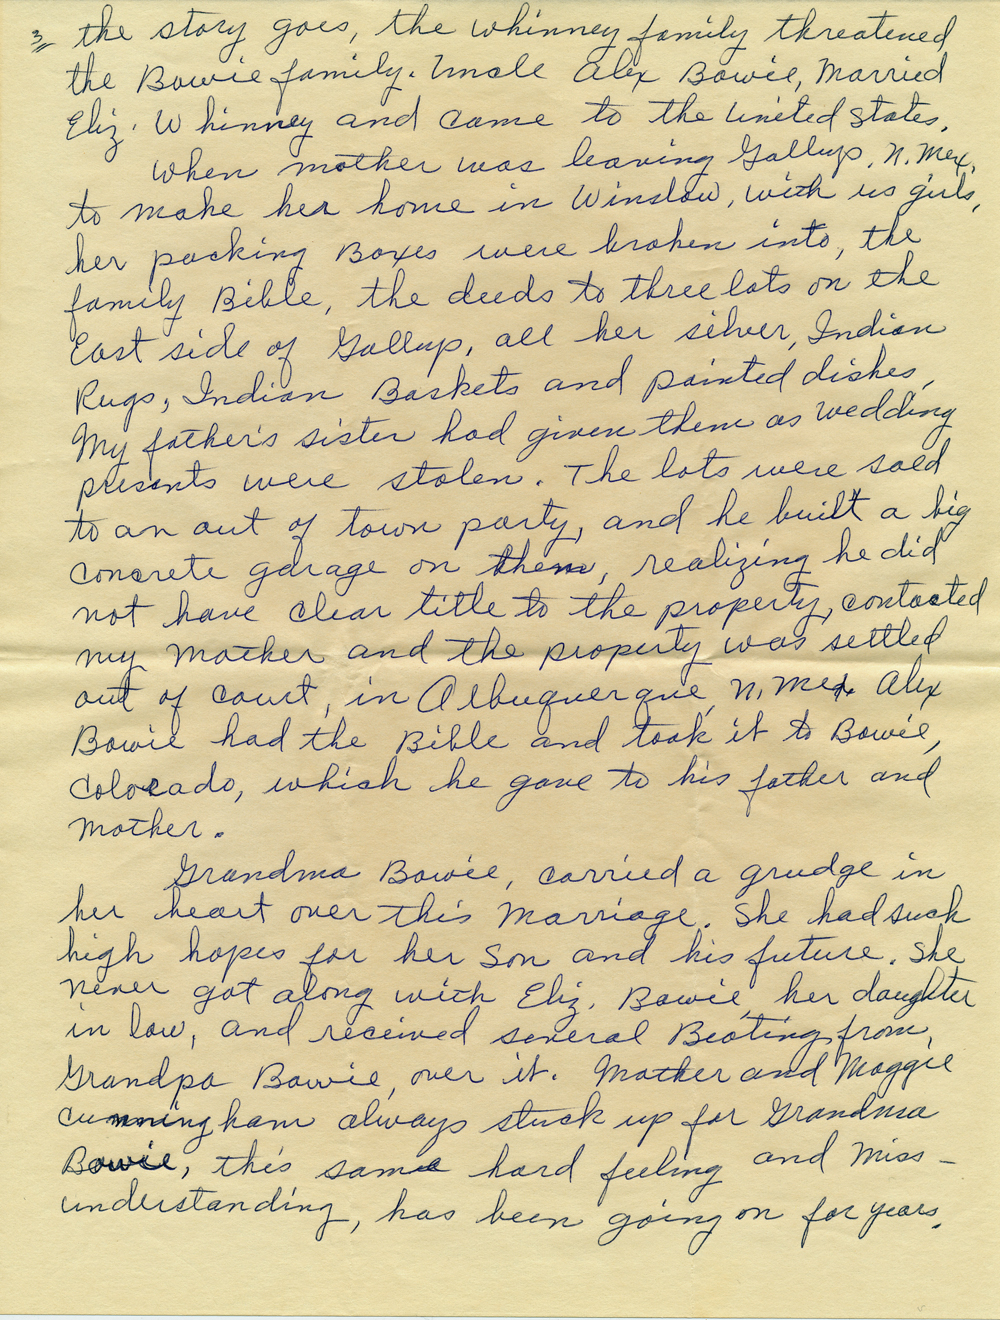 3 the story goes, the Whinney family threatened
the Bowie family. Uncle Alex Bowie, Married
Eliz. Whinney and came to the United States.
When mother was leaving Gallup, N. Mex,
to make her home in Winslow, with us girls,
her packing Boxes were broken into, the
family Bible, the deeds to three lots on the
East side of Gallup, all her silver, Indian
Rugs, Indian Baskets and painted dishes,
My father's sister had given them as wedding
presents were stolen. The lots were sold
to an out of town party, and he built a big
concrete garage on them, realizing he did
not have clear title to the property, contacted
my Mother and the property was settled
out of court, in Albuquerque, N. Mex. Alex
Bowie had the Bible and took it to Bowie,
Colorado, which he gave to his father and
Mother.
Grandma Bowie, carried a grudge in
her heart over this Marriage. She had such
high hopes for her Son and his future. She
never got along with Eliz. Bowie, her daughter
in law, and received several Beating from,
Grandpa Bowie, over it. Mother and Maggie
Cunningham always stuck up for Grandma
Bowie, this same hard feeling and Miss-
understanding, has been going on for years.